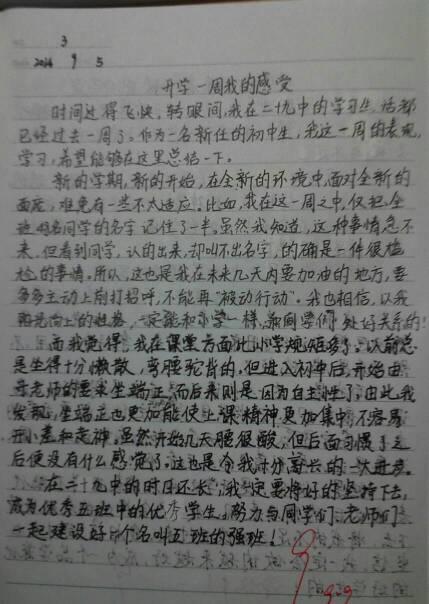 3
2014 9 5
开学一周我的感受
时间过得飞快，转眼间，我在二十九中的学习生活都
已经过去一周了。作为一名新任的初中生，我这一周的表现，
学习，希望能够在这里总结一下。
新的学期，新的开始，在全新的环境中，面对全新的
面庞，难免有一些不太适应。比如，我在这一周之中，仅把全
班同学的名字记住了一半。虽然我知道，这种事情急不
来，但看到同学，认的出来，却叫不出名字，的确是一件很尴
尬的事情。所以，这也是我在未来几天内要加油的地方，要
多多主动上前打招呼，不能再“被动行动”。我也相信，以我
阳光向上的姓格，一定能和小学一样，和同学们处好关系的！
而我觉得，我在课堂方面比小学规矩多了。以前总
是坐得十分懒散，弯腰驼背的，但进入初中后，开始由
于老师的要求坐端正，而后来则是因为自主性了，由此我
发现，坐端正也更加能使上课精神更加集中，不容易
开小差和走神，虽然开始几天腰很酸，但后面习惯了之
后便没有什么感觉了。这也是令我十分高兴的一大进步。
在二十九中的时日还长，我一定要将好的坚持下去，
成为优秀五班中的优秀学生，努力与同学们、老师们
一起建设好一个名叫五班的强班！